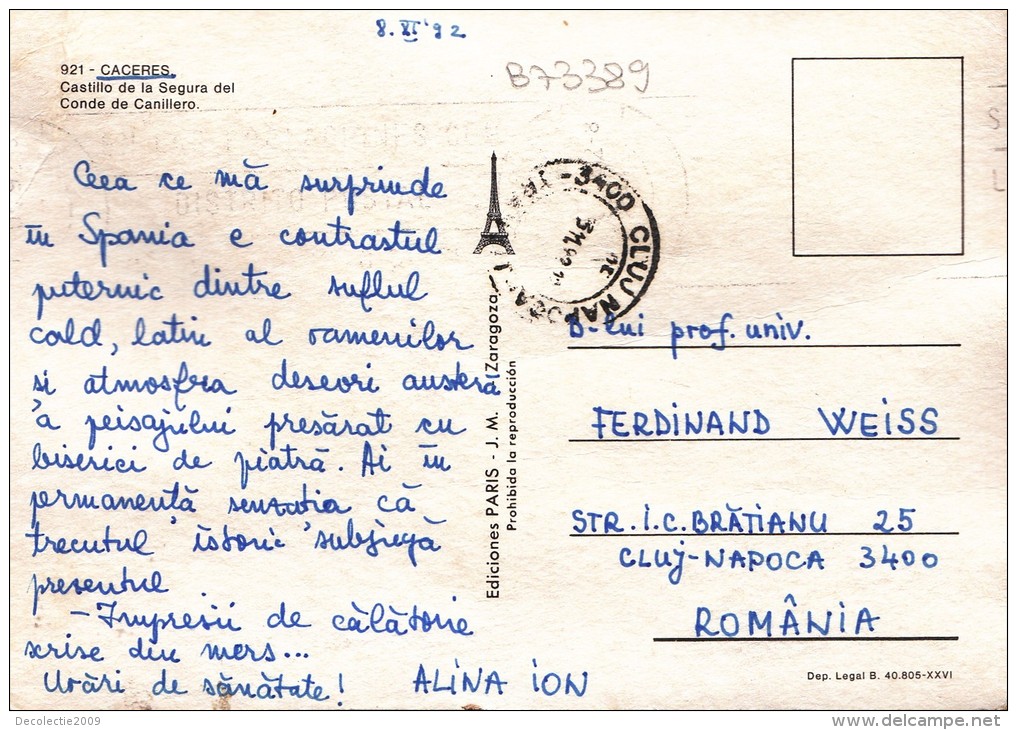 8.XI'92
921 - CACERES.
Castillo de la Segura del
Conde de Canillero.
B73389
Ceea ce mă surprinde
în Spania e contrastul
puternic dintre suflul
cald, latin al oamenilor
și atmosfera deseori austeră
a peisajului presărat cu
biserici de piatră. Ai în
permanență senzația că
trecutul istoric subjugă
prezentul
- Impresii de călătorie
scrise din mers...
Urări de sănătate!
ALINA ION
Ediciones PARIS - J. M. Zaragoza
Prohibida la reproducción
3400 CLUJ NAPOCA
D-lui prof. univ.
FERDINAND WEISS
STR. I.C. BRĂTIANU 25
CLUJ-NAPOCA 3400
ROMÂNIA
Dep. Legal B. 40.805-XXVI
Decolectie2009
www.delcampe.net